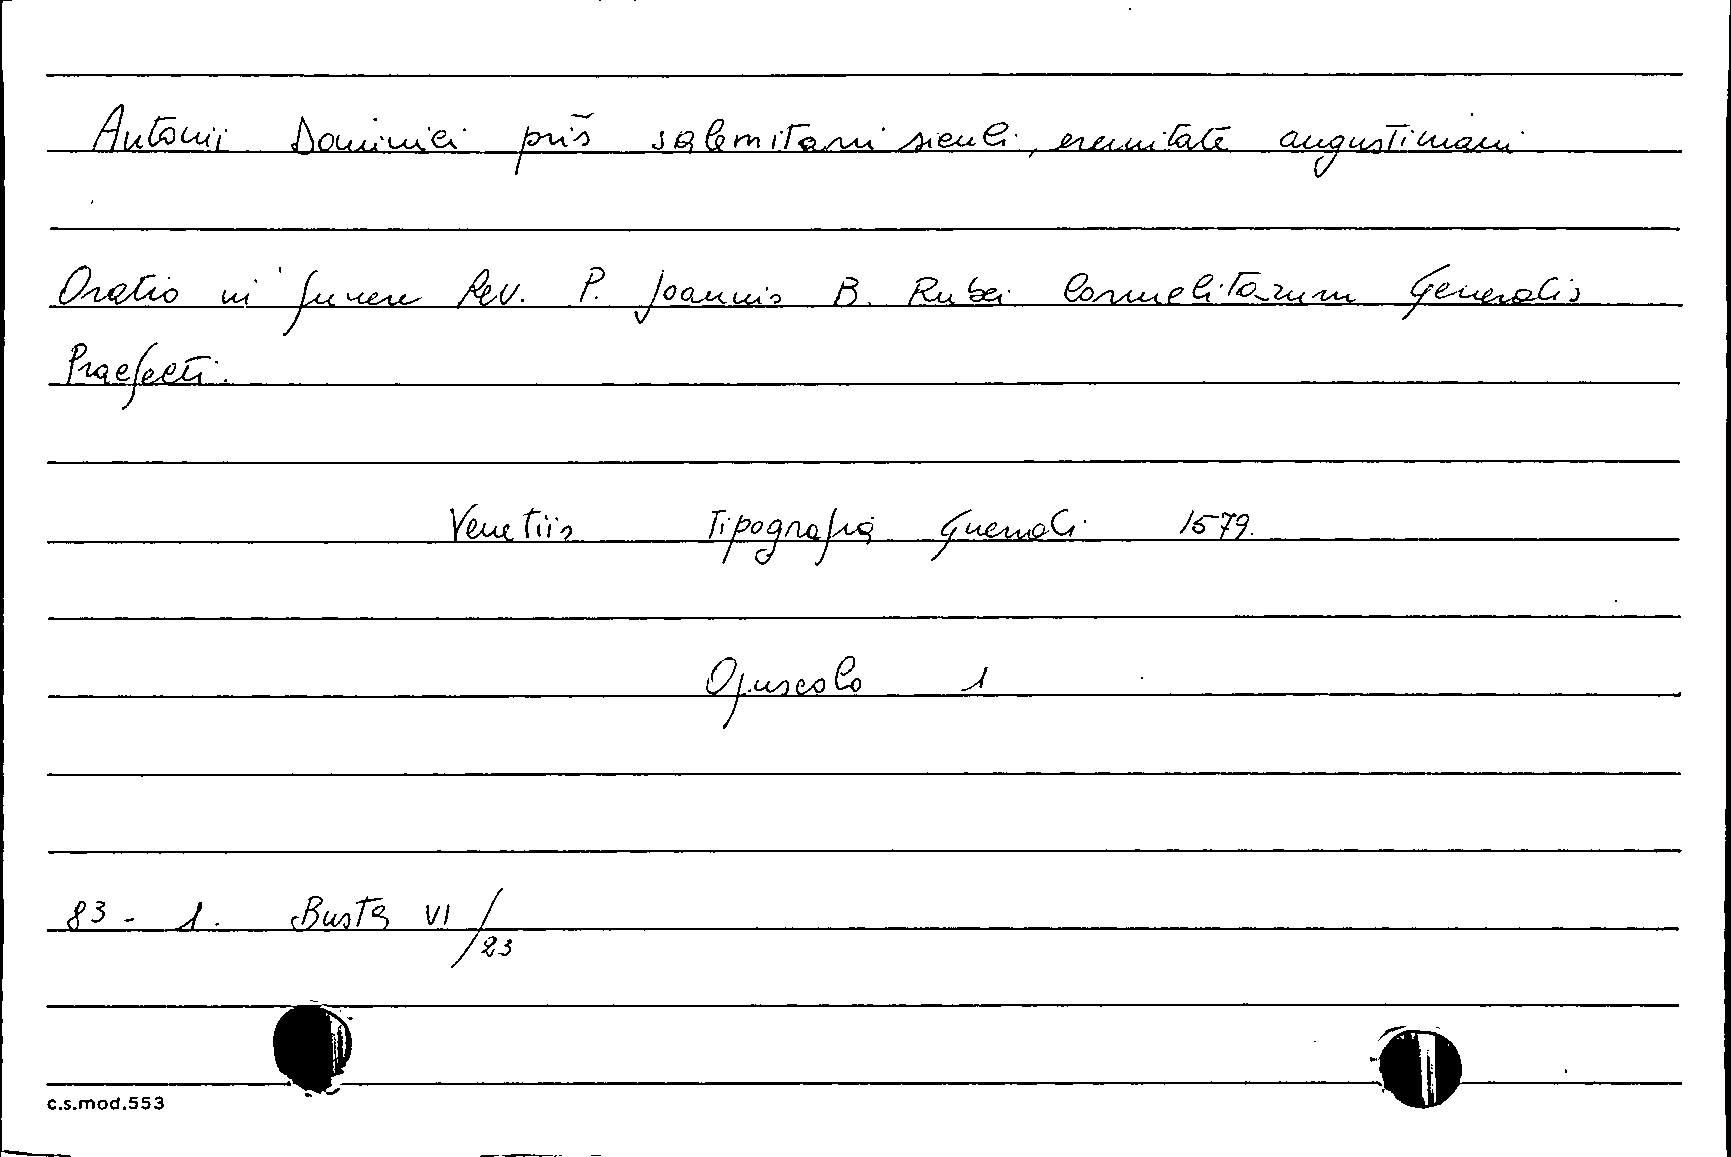 Antonii Dominici pris̃ salemitani siculi, eremitate augustiniani
Oratio in funere Rev. P. Joannis B. Rubei Carmelitarum Generalis
Praefecti.
Venetiis Tipografia Guerrali 1579.
Opuscolo 1
83 - 1. Busta VI/23
c.s.mod.553